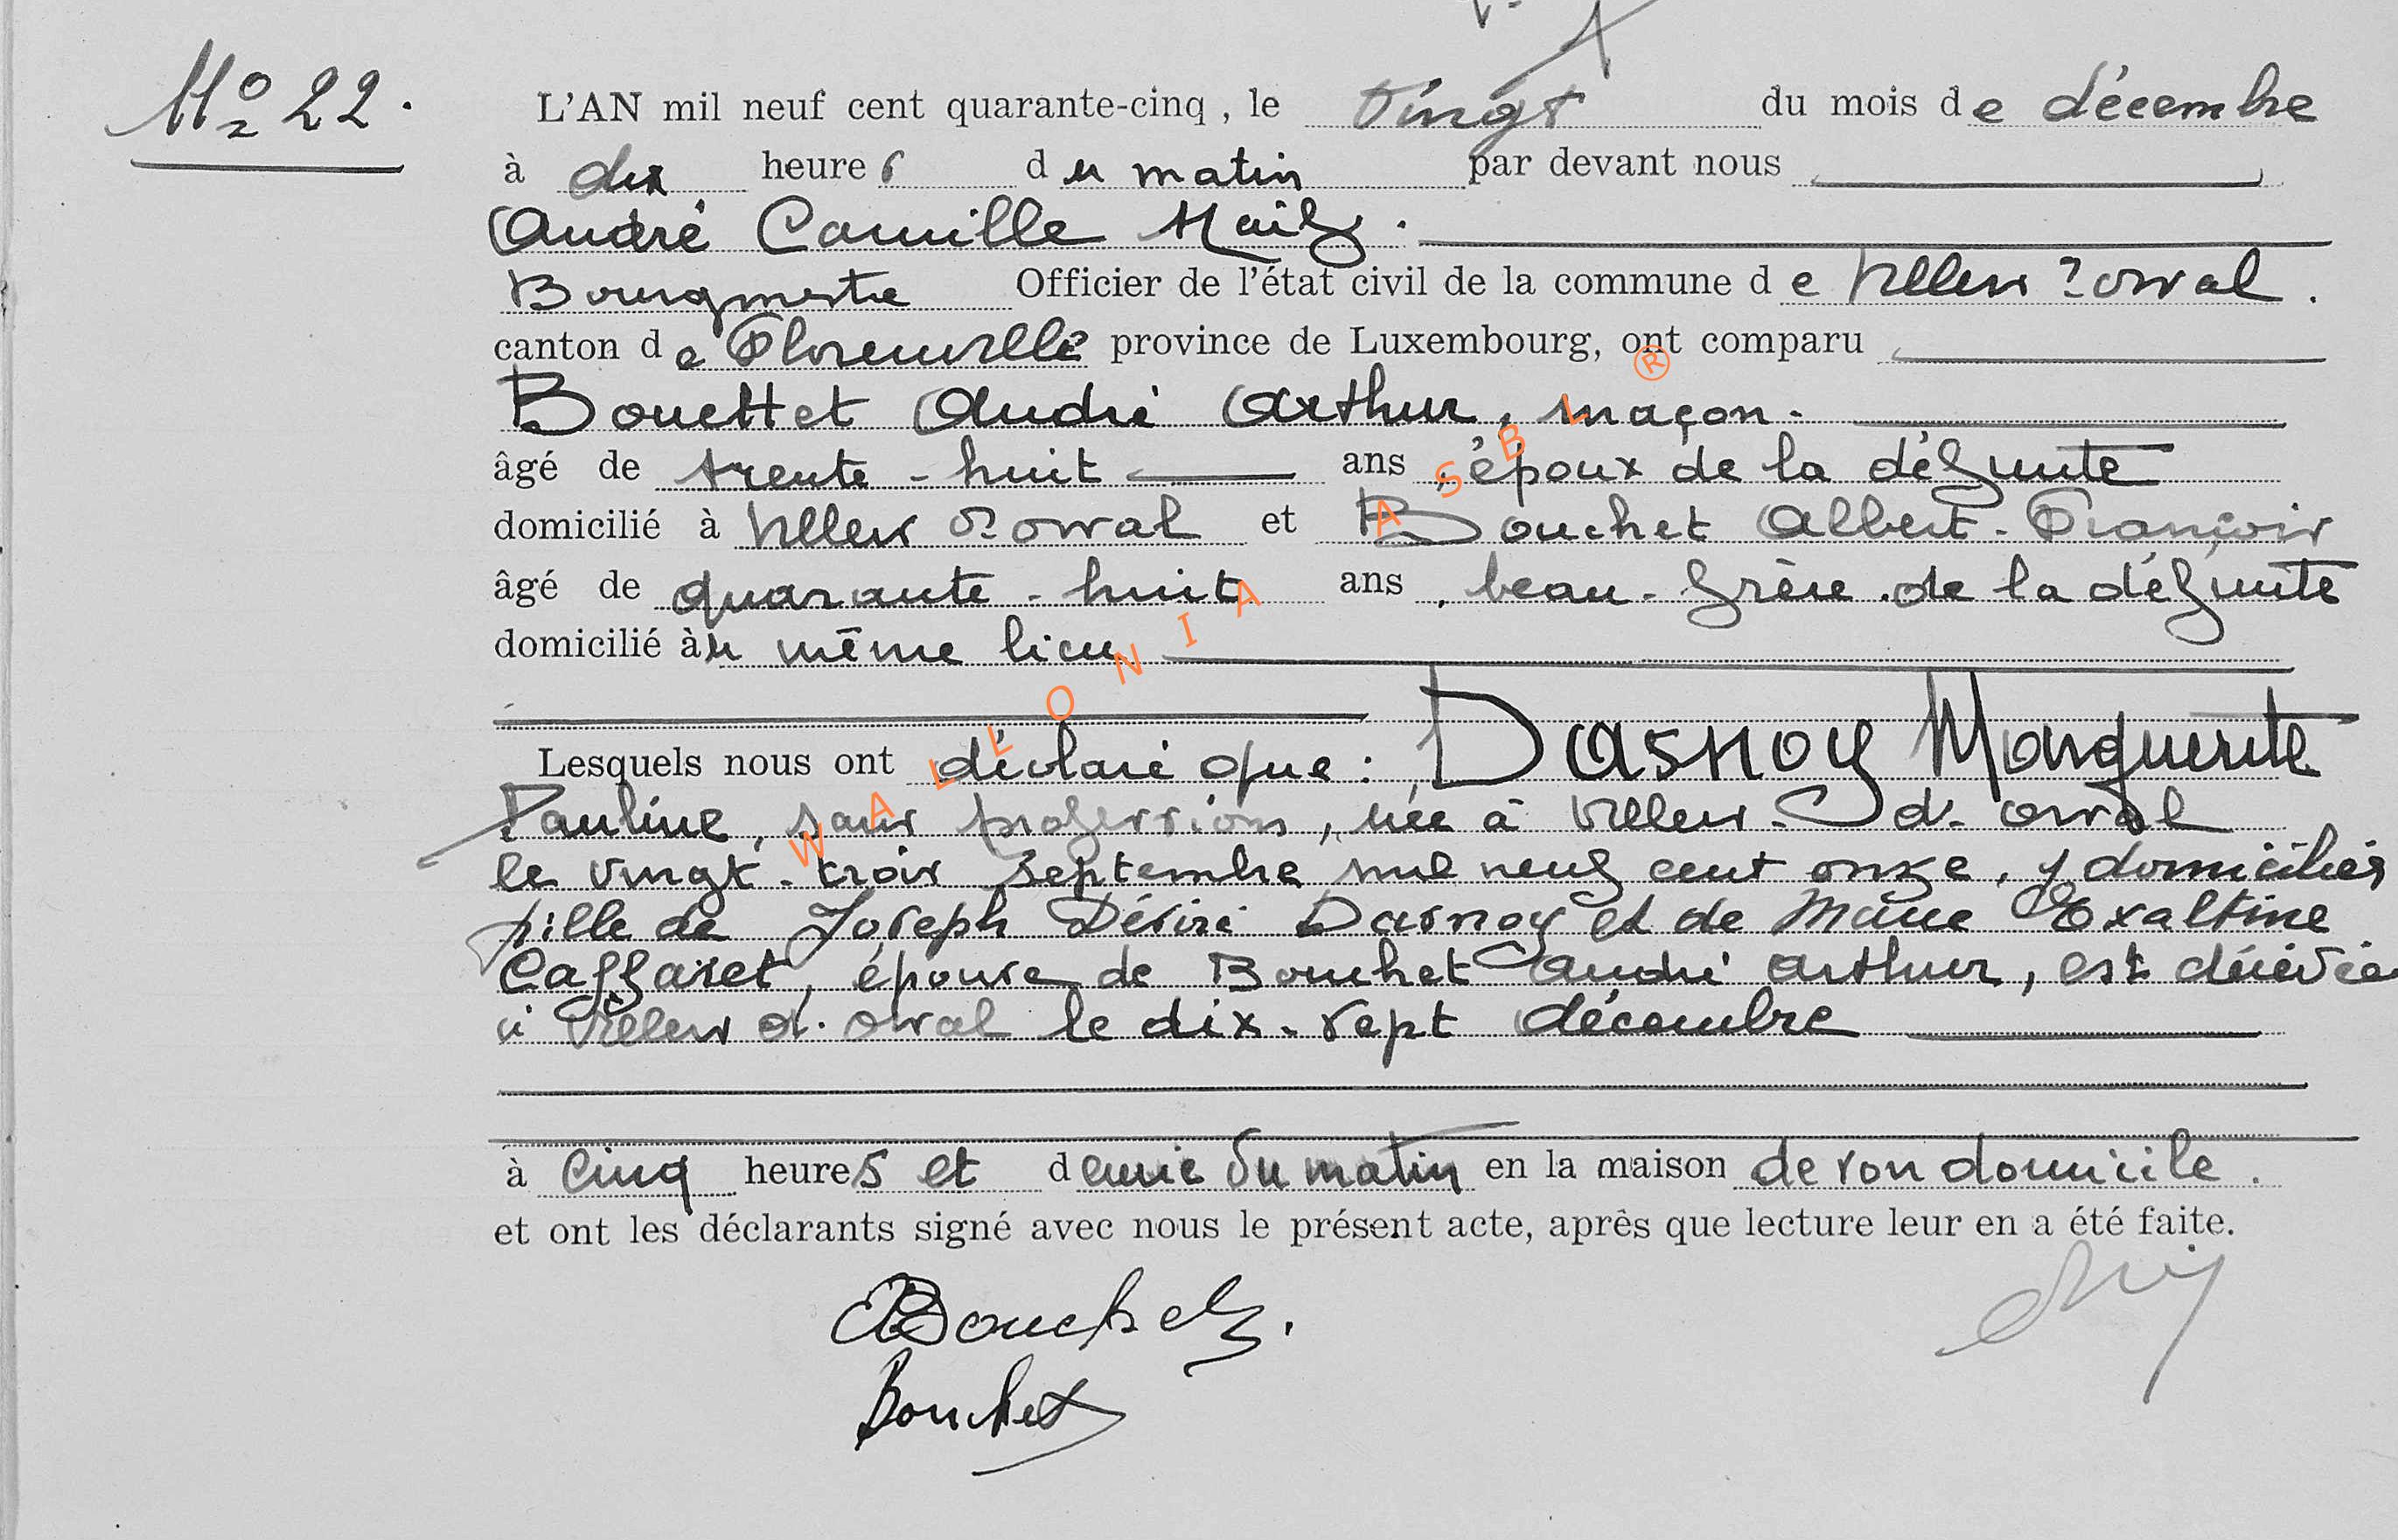 No 22.
L'AN mil neuf cent quarante-cinq, le vingt du mois de décembre
à dix heures du matin par devant nous
André Camille
Bourgmestre Officier de l'état civil de la commune de Villers d. orval.
canton de Florenville province de Luxembourg, ont comparu
Bouchet André Arthur, maçon.
âgé de trente-huit ans, époux de la défunte
domicilié à Villers d. orval et Bouchet Albert-François
âgé de quarante-huit ans, beau-frère de la défunte
domicilié àu même lieu
Lesquels nous ont déclaré que: Dasnoy Marguerite
Pauline, sans profession, née à Villers-d-orval
le vingt-trois septembre mil neuf cent onze, y domiciliée
fille de Joseph Désiré Dasnoy et de Marie Exaltine
Caffaret, épouse de Bouchet André Arthur, est décédée
à Villers d. orval le dix-sept décembre
à cinq heures et demie du matin en la maison de son domicile.
et ont les déclarants signé avec nous le présent acte, après que lecture leur en a été faite.
ABouchet.
Bouchet
WALLONIA ASBL ®